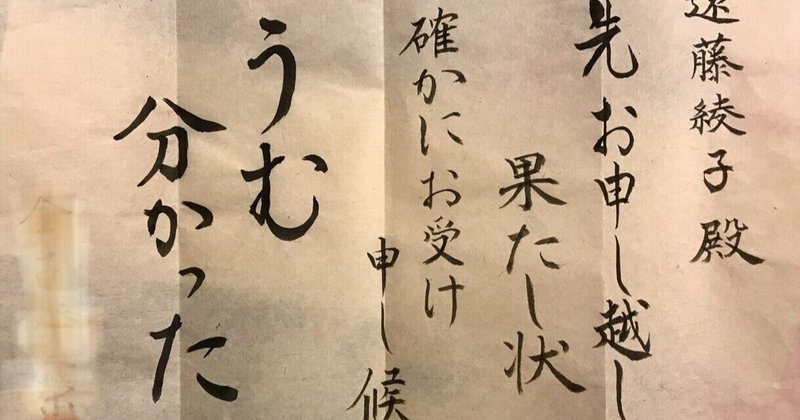 遠藤綾子殿
先お申し越し
果たし状
確かにお受け
申し候
うむ
分かった